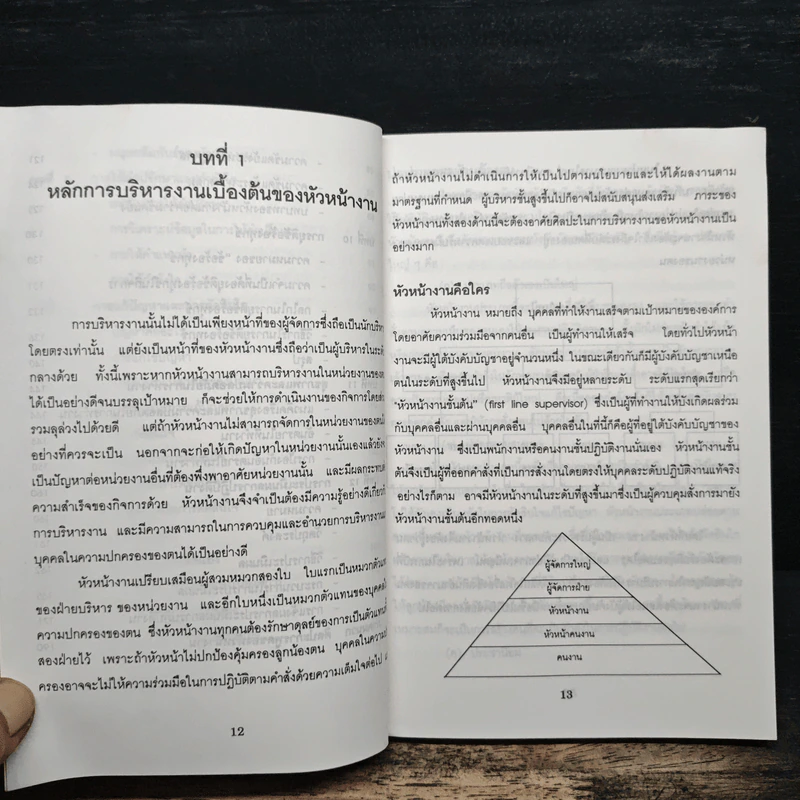 บทที่ 1
หลักการบริหารงานเบื้องต้นของหัวหน้างาน
การบริหารงานนั้นไม่ได้เป็นเพียงหน้าที่ของผู้จัดการซึ่งถือเป็นนักบริห
โดยตรงเท่านั้น แต่ยังเป็นหน้าที่ของหัวหน้างานซึ่งถือว่าเป็นผู้บริหารในระดั
กลางด้วย ทั้งนี้เพราะหากหัวหน้างานสามารถบริหารงานในหน่วยงานของตน
ได้เป็นอย่างดีจนบรรลุเป้าหมาย ก็จะช่วยให้การดำเนินงานของกิจการโดย
รวมลุล่วงไปด้วยดี แต่ถ้าหัวหน้างานไม่สามารถจัดการในหน่วยงานของตน
อย่างที่ควรจะเป็น นอกจากจะก่อให้เกิดปัญหาในหน่วยงานนั้นเองแล้วยัง
เป็นปัญหาต่อหน่วยงานอื่นที่ต้องพึ่งพาอาศัยหน่วยงานนั้น และมีผลกระทบ
ความสำเร็จของกิจการด้วย หัวหน้างานจึงจำเป็นต้องมีความรู้อย่างดีเกี่ยว
การบริหารงาน และมีความสามารถในการควบคุมและอำนวยการบริหารงาน
บุคคลในความปกครองของตนได้เป็นอย่างดี
หัวหน้างานเปรียบเสมือนผู้สวมหมวกสองใบ ใบแรกเป็นหมวกตัวแทน
ของฝ่ายบริหาร ของหน่วยงาน และอีกใบหนึ่งเป็นหมวกตัวแทนของบุคคล
ความปกครองของตน ซึ่งหัวหน้างานทุกคนต้องรักษาดุลย์ของการเป็นตัวแทน
สองฝ่ายไว้ เพราะถ้าหัวหน้าไม่ปกป้องคุ้มครองลูกน้องตน บุคคลในความ
ครองอาจจะไม่ให้ความร่วมมือในการปฏิบัติตามคำสั่งด้วยความเต็มใจต่อไป
12
ถ้าหัวหน้างานไม่ดำเนินการให้เป็นไปตามนโยบายและให้ได้ผลงานตาม
มาตรฐานที่กำหนด ผู้บริหารชั้นสูงขึ้นไปก็อาจไม่สนับสนุนส่งเสริม ภาระของ
หัวหน้างานทั้งสองด้านนี้จะต้องอาศัยศิลปะในการบริหารงานของหัวหน้างานเป็น
อย่างมาก
หัวหน้างานคือใคร
หัวหน้างาน หมายถึง บุคคลที่ทำให้งานเสร็จตามเป้าหมายขององค์การ
โดยอาศัยความร่วมมือจากคนอื่น เป็นผู้ทำงานให้เสร็จ โดยทั่วไปหัวหน้า
งานจะมีผู้ใต้บังคับบัญชาอยู่จำนวนหนึ่ง ในขณะเดียวกันก็มีผู้บังคับบัญชาเหนือ
ตนในระดับที่สูงขึ้นไป หัวหน้างานจึงมีอยู่หลายระดับ ระดับแรกสุดเรียกว่า
"หัวหน้างานชั้นต้น" (first line supervisor) ซึ่งเป็นผู้ที่ทำงานให้บังเกิดผลร่วม
กับบุคคลอื่นและผ่านบุคคลอื่น บุคคลอื่นในที่นี้ก็คือผู้ที่อยู่ใต้บังคับบัญชาของ
หัวหน้างาน ซึ่งเป็นพนักงานหรือคนงานชั้นปฏิบัติงานนั่นเอง หัวหน้างานชั้น
ต้นจึงเป็นผู้ที่ออกคำสั่งที่เป็นการสั่งงานโดยตรงให้บุคคลระดับปฏิบัติงานแท้จริง
อย่างไรก็ตาม อาจมีหัวหน้างานในระดับที่สูงขึ้นมาซึ่งเป็นผู้ควบคุมสั่งการมายัง
หัวหน้างานชั้นต้นอีกทอดหนึ่ง
ผู้จัดการใหญ่
ผู้จัดการฝ่าย
หัวหน้างาน
หัวหน้าคนงาน
คนงาน
13